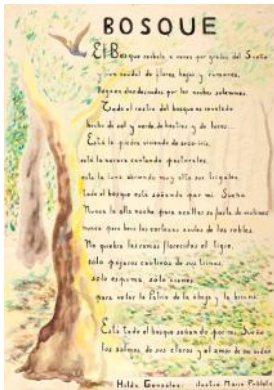 BOSQUE
El Bosque resbala a veces por gradas del Sueño
y un caudal de flores, hojas y rumores,
llegan desbocados por las noches solemnes.
Todo el rostro del bosque es revelado
hecho de sol y verde, de bestias y de loros...
Está la piedra viviendo de arco-iris,
está la cantando pastorales,
esta la luna abriendo muy alto sus trigales.
Todo el bosque está soñando por mi Sueño
Nunca la alta noche para ocultar su furia de violines
nunca para herir las cortezas azules de los robles.
No quiebra las ramas florecidas el tigre,
sólo pájaros cautivos de sus trinos,
sólo espuma, sólo
para velar la Patria de la abeja y la brisa.
Está todo el bosque soñando por mi Sueño
los salmos de sus claros y el amor de sus nidos
Hilda González: ilustró María